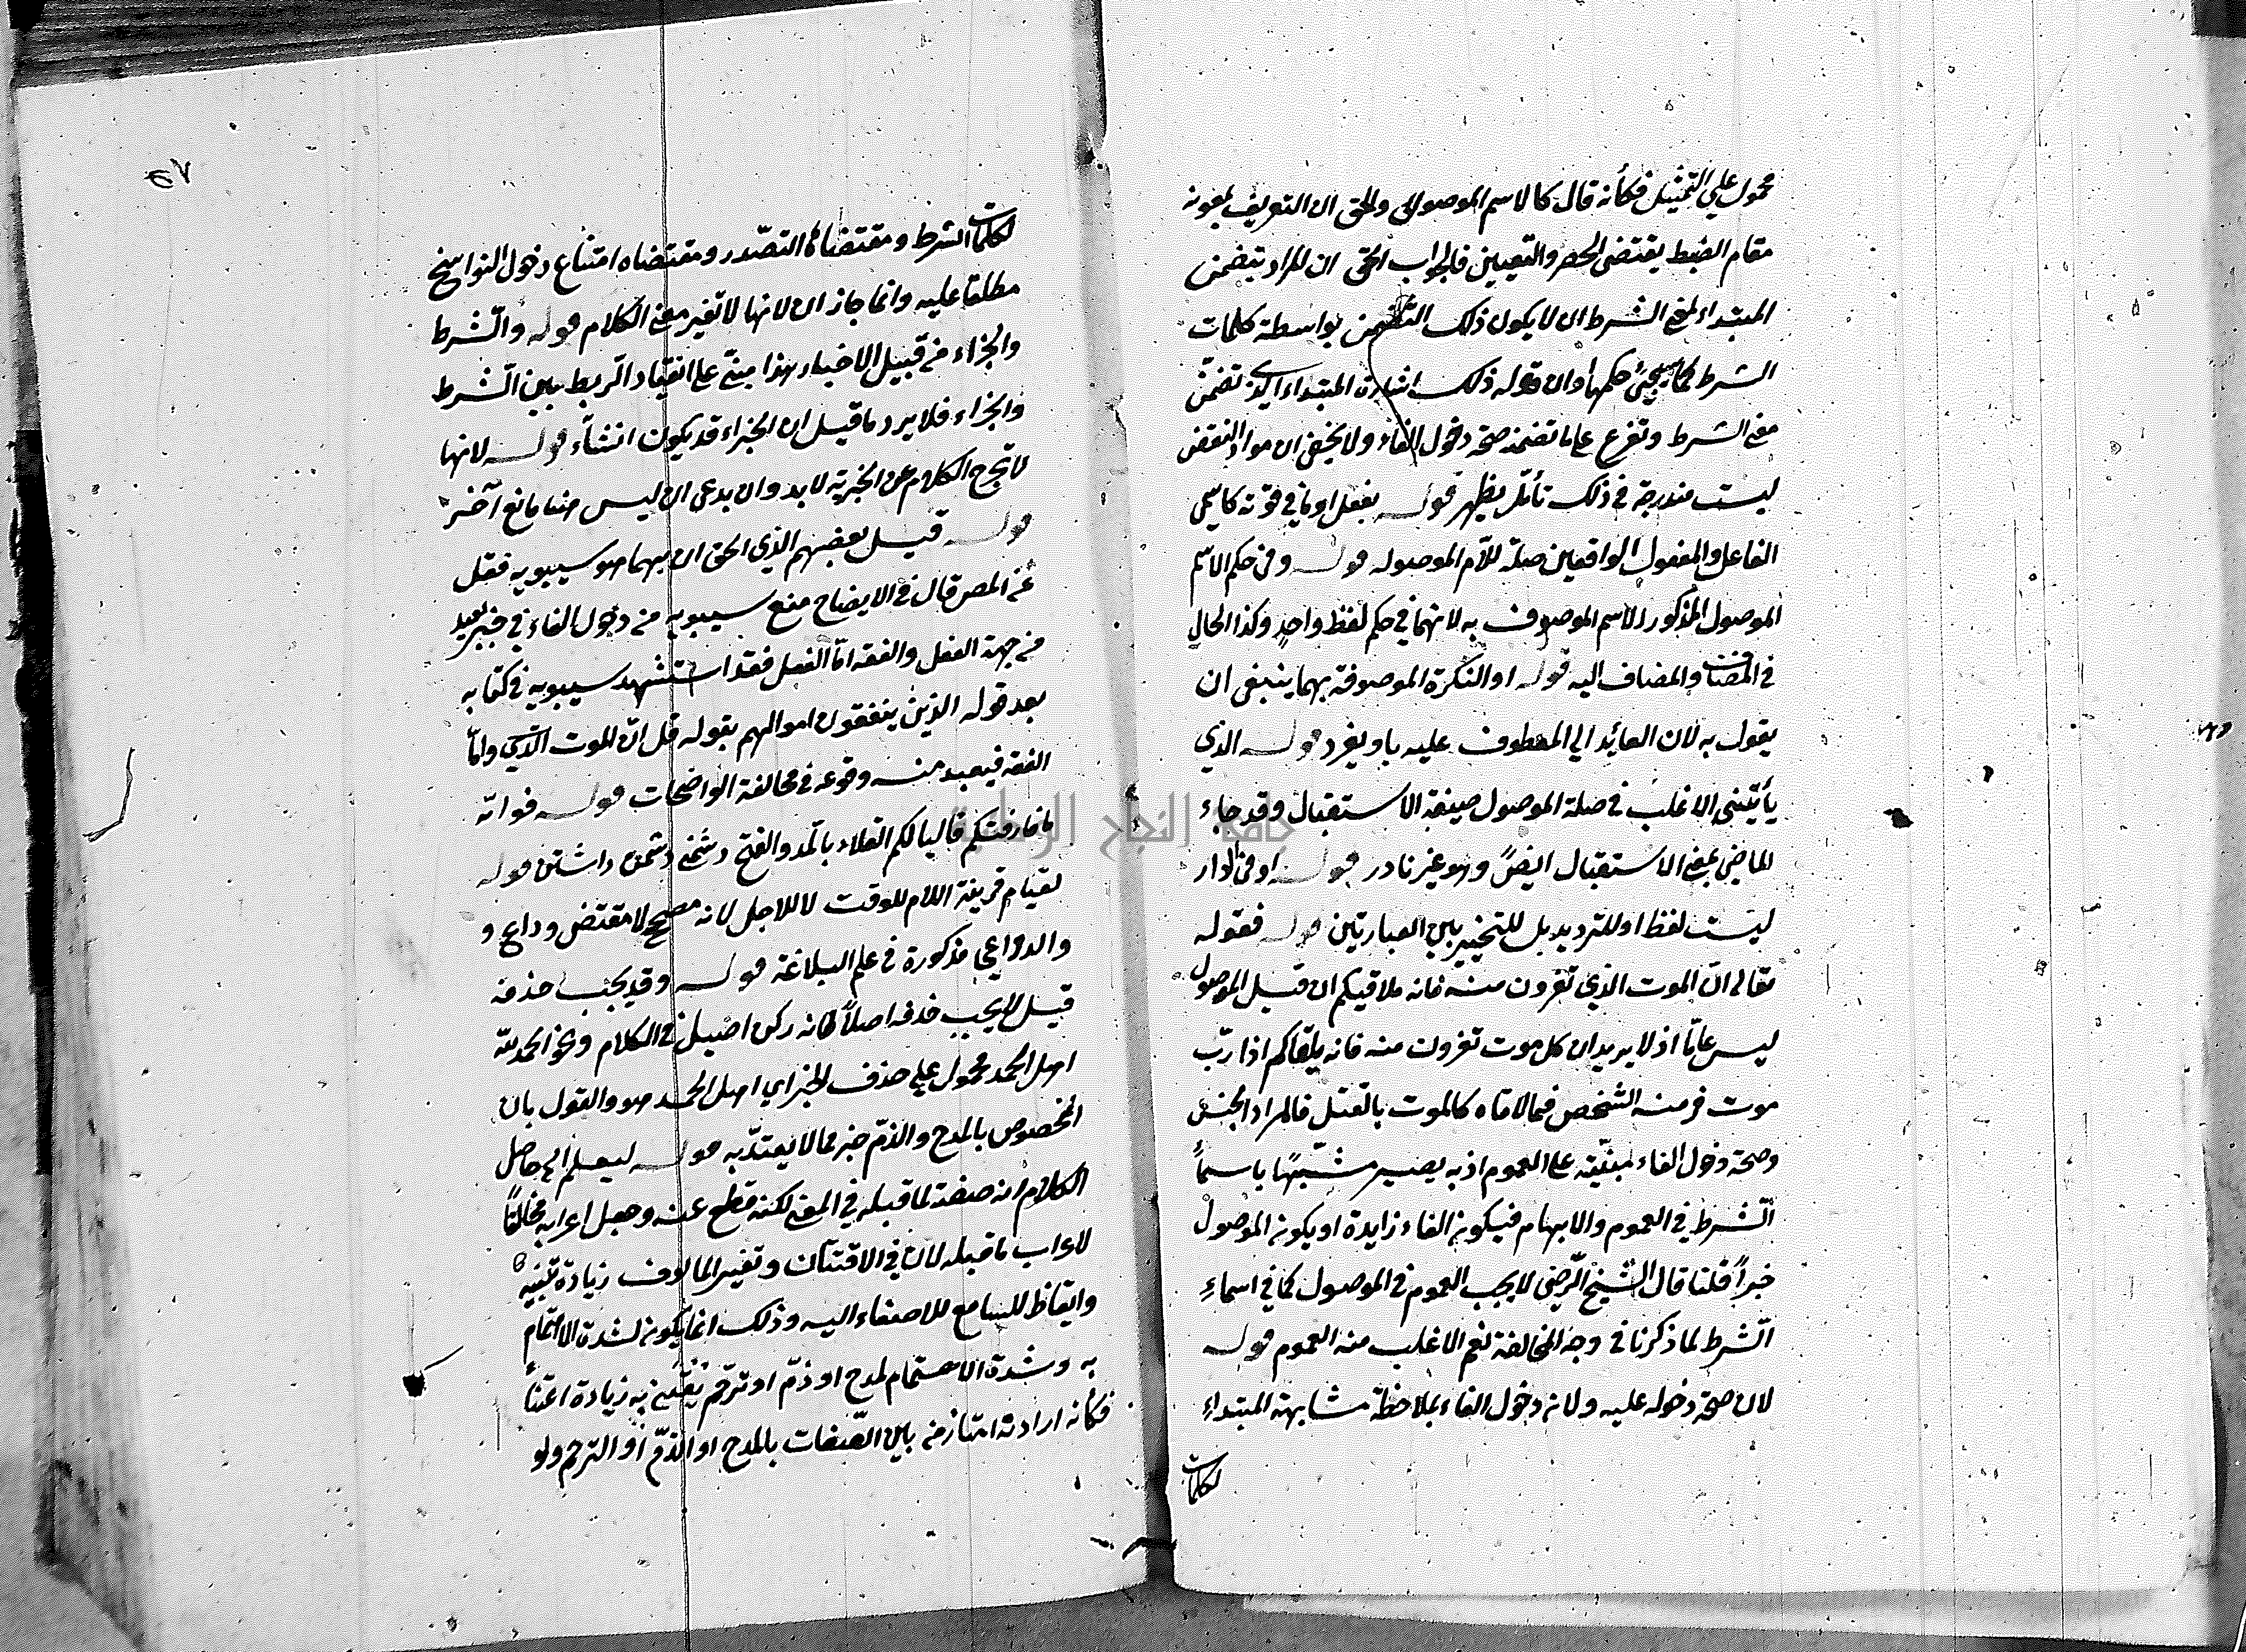 محمول علي التمثيل فكأنه قال كالاسم الموصول والحق ان التعريف بمعونة
مقام الضبط يقتضى الحصر والتعيين فالجواب الحق ان المراد يتضمن
المبتداء لمعنى الشرط ان لا يكون ذلك التضمن بواسطة كلمات
الشرط كما سيجئ حكمها وان قوله ذلك اشارة المبتداء الذى تضمن
معنى الشرط وتفرع على ما تضمنه صحة دخول الفاء ولا يخفى ان مواد النقض
ليست مندرجة في ذلك تأمل يظهر قوله بفعل او ما في قوته كاسمى
الفاعل والمفعول الواقعين صلة للام الموصولة قوله وفى حكم الاسم
الموصول المذكور الاسم الموصوف به لانهما في حكم لفظ واحد وكذا الحال
في المضاف والمضاف اليه قوله او النكرة الموصوفة بهما ينبغى ان
يقول به لان العائد الي المعطوف عليه باو يفرد قوله الذي
يأتينى الاغلب في صلة الموصول صيغة الاستقبال وقد جاء
الماضى بمعنى الاستقبال ايضً وهو غير نادر قوله او فى الدار
ليست لفظ او للترديد بل للتخيير بين العبارتين قوله فقوله
تعالى ان الموت الذي تفرون منه فانه ملاقيكم ان قيل الموصول
ليس عاما اذ لا يريد ان كل موت تفرون منه فانه يلقاكم اذا رب
موت فر منه الشخص فما لاقاه كالموت بالقتل فالمراد الجنس
وصحة دخول الفاء مبنية على العموم اذ به يصير مشبها باسما
الشرط في العموم والابهام فيكون الفاء زايدة او يكون الموصول
خبراً قلنا قال الشيخ الرضى لا يجب العموم في الموصول كما في اسماء
الشرط لما ذكرنا في وجه المخالفة نعم الاغلب منه العموم قوله
لان صحة دخوله عليه ولان دخول الفاء بملاحظة مشابهة المبتداء
لكلمات
٤٧
لكلمات الشرط ومقتضاه التصدر ومقتضاه امتناع دخول النواسخ
مطلقا عليه وانما جاز ان لانها لا تغير معنى الكلام قوله والشرط
والجزاء من قبيل الاخبار هذا مبنى على انعقاد الربط بين الشرط
والجزاء فلا يرد ما قيل ان الجزاء قد يكون انشاء قوله لانها
لا تخرج الكلام عن الخبرية لا بد وان يدعى ان ليس هنا مانع آخر
قوله قيل بعضهم الذي الحق ان بهما هو سيبويه فقل
عن المصر قال في الايضاح منع سيبويه من دخول الفاء في خبر بعيد
من جهة النقل والفقه اما النقل فقد استشهد سيبويه في كتابه
بعد قوله الذين ينفقون اموالهم بقوله قل ان الموت الذي واما
الفقه فيبعد منه وقوعه في مخالفة الواضحات قوله فوالله
ما فارقتكم قاليا لكم القلاء بالمد والفتح دشمن داشتن قوله
لقيام قرينة اللام للوقت لا للاجل لانه مصحح لا مقتض وداع و
والدواعى مذكورة في علم البلاغة قوله وقد يجب حذفه
قيل لا يجب حذفه اصلاً لانه ركن اصيل في الكلام ونحو الحمد لله
اهل الحمد محمول على حذف الخبر اي اهل الحمد هو والقول بان
المخصوص بالمدح والذم خبر مما لا يعتد به قوله ليعلم الى حاصل
الكلام انه صفة لما قبله في المعنى لكنه قطع عنه وجعل اعرابه مخالفاً
لاعراب ما قبله لان في الافتنان وتغيير المالوف زيادة تنبيه
وايقاظ للسامع للاصغاء اليه وذلك انما يكون لشدة الاهتمام
به وشدة الاهتمام لمدح او ذم او ترحم يقتضى به زيادة اعتناً
فكأنه اراد امتيازه من بين الصفات بالمدح او الذم او الترحم ولو
جامعة النجاح الوطنية